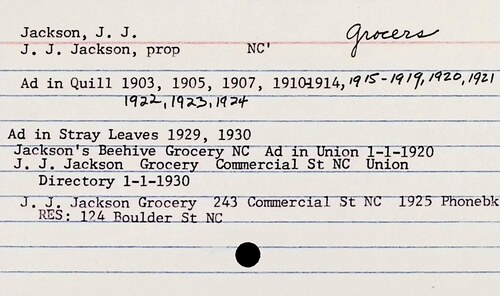 Jackson, J. J.
Grocers
J. J. Jackson, prop NC'
Ad in Quill 1903, 1905, 1907, 1910-1914, 1915-1919, 1920, 1921
1922, 1923, 1924
Ad in Stray Leaves 1929, 1930
Jackson's Beehive Grocery NC Ad in Union 1-1-1920
J. J. Jackson Grocery Commercial St NC Union
Directory 1-1-1930
J. J. Jackson Grocery 243 Commercial St NC 1925 Phonebk
RES: 124 Boulder St NC